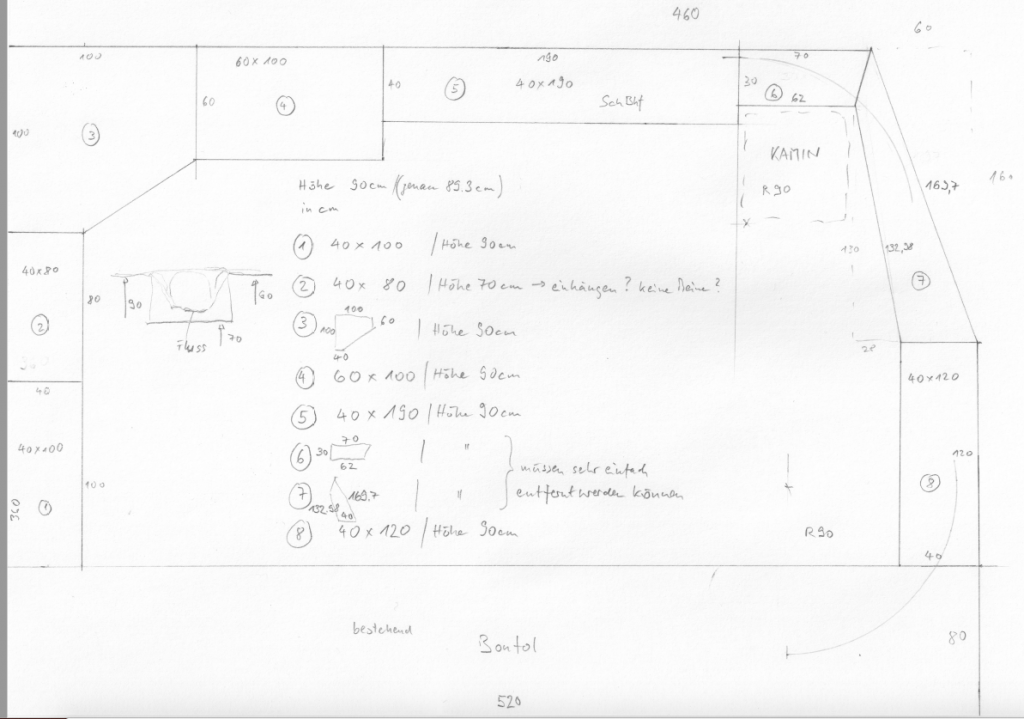 460
60
100
60 x 100
190
70
60
4
40
5
40 x 190
30
6
62
Sch Bhf
100
3
KAMIN
R 90
160
163,7
Höhe 90cm / (genau 89.3cm)
in cm
1 40 x 100 / Höhe 90cm
130
132,58
40x80
80
2 40 x 80 / Höhe 70cm → einhängen? keine Beine?
7
90
60
70
Fluss
2
3 100 100 60 40 | Höhe 90cm
28
4 60 x 100 / Höhe 90cm
40x120
40
5 40 x 190 / Höhe 90cm
40x100
6 30 70 62 / "
müssen sehr einfach
entfernt werden können
120
100
8
7 132.58 169.7 40 / "
340
1
8 40 x 120 / Höhe 90cm
R 90
40
bestehend
Bontol
80
520